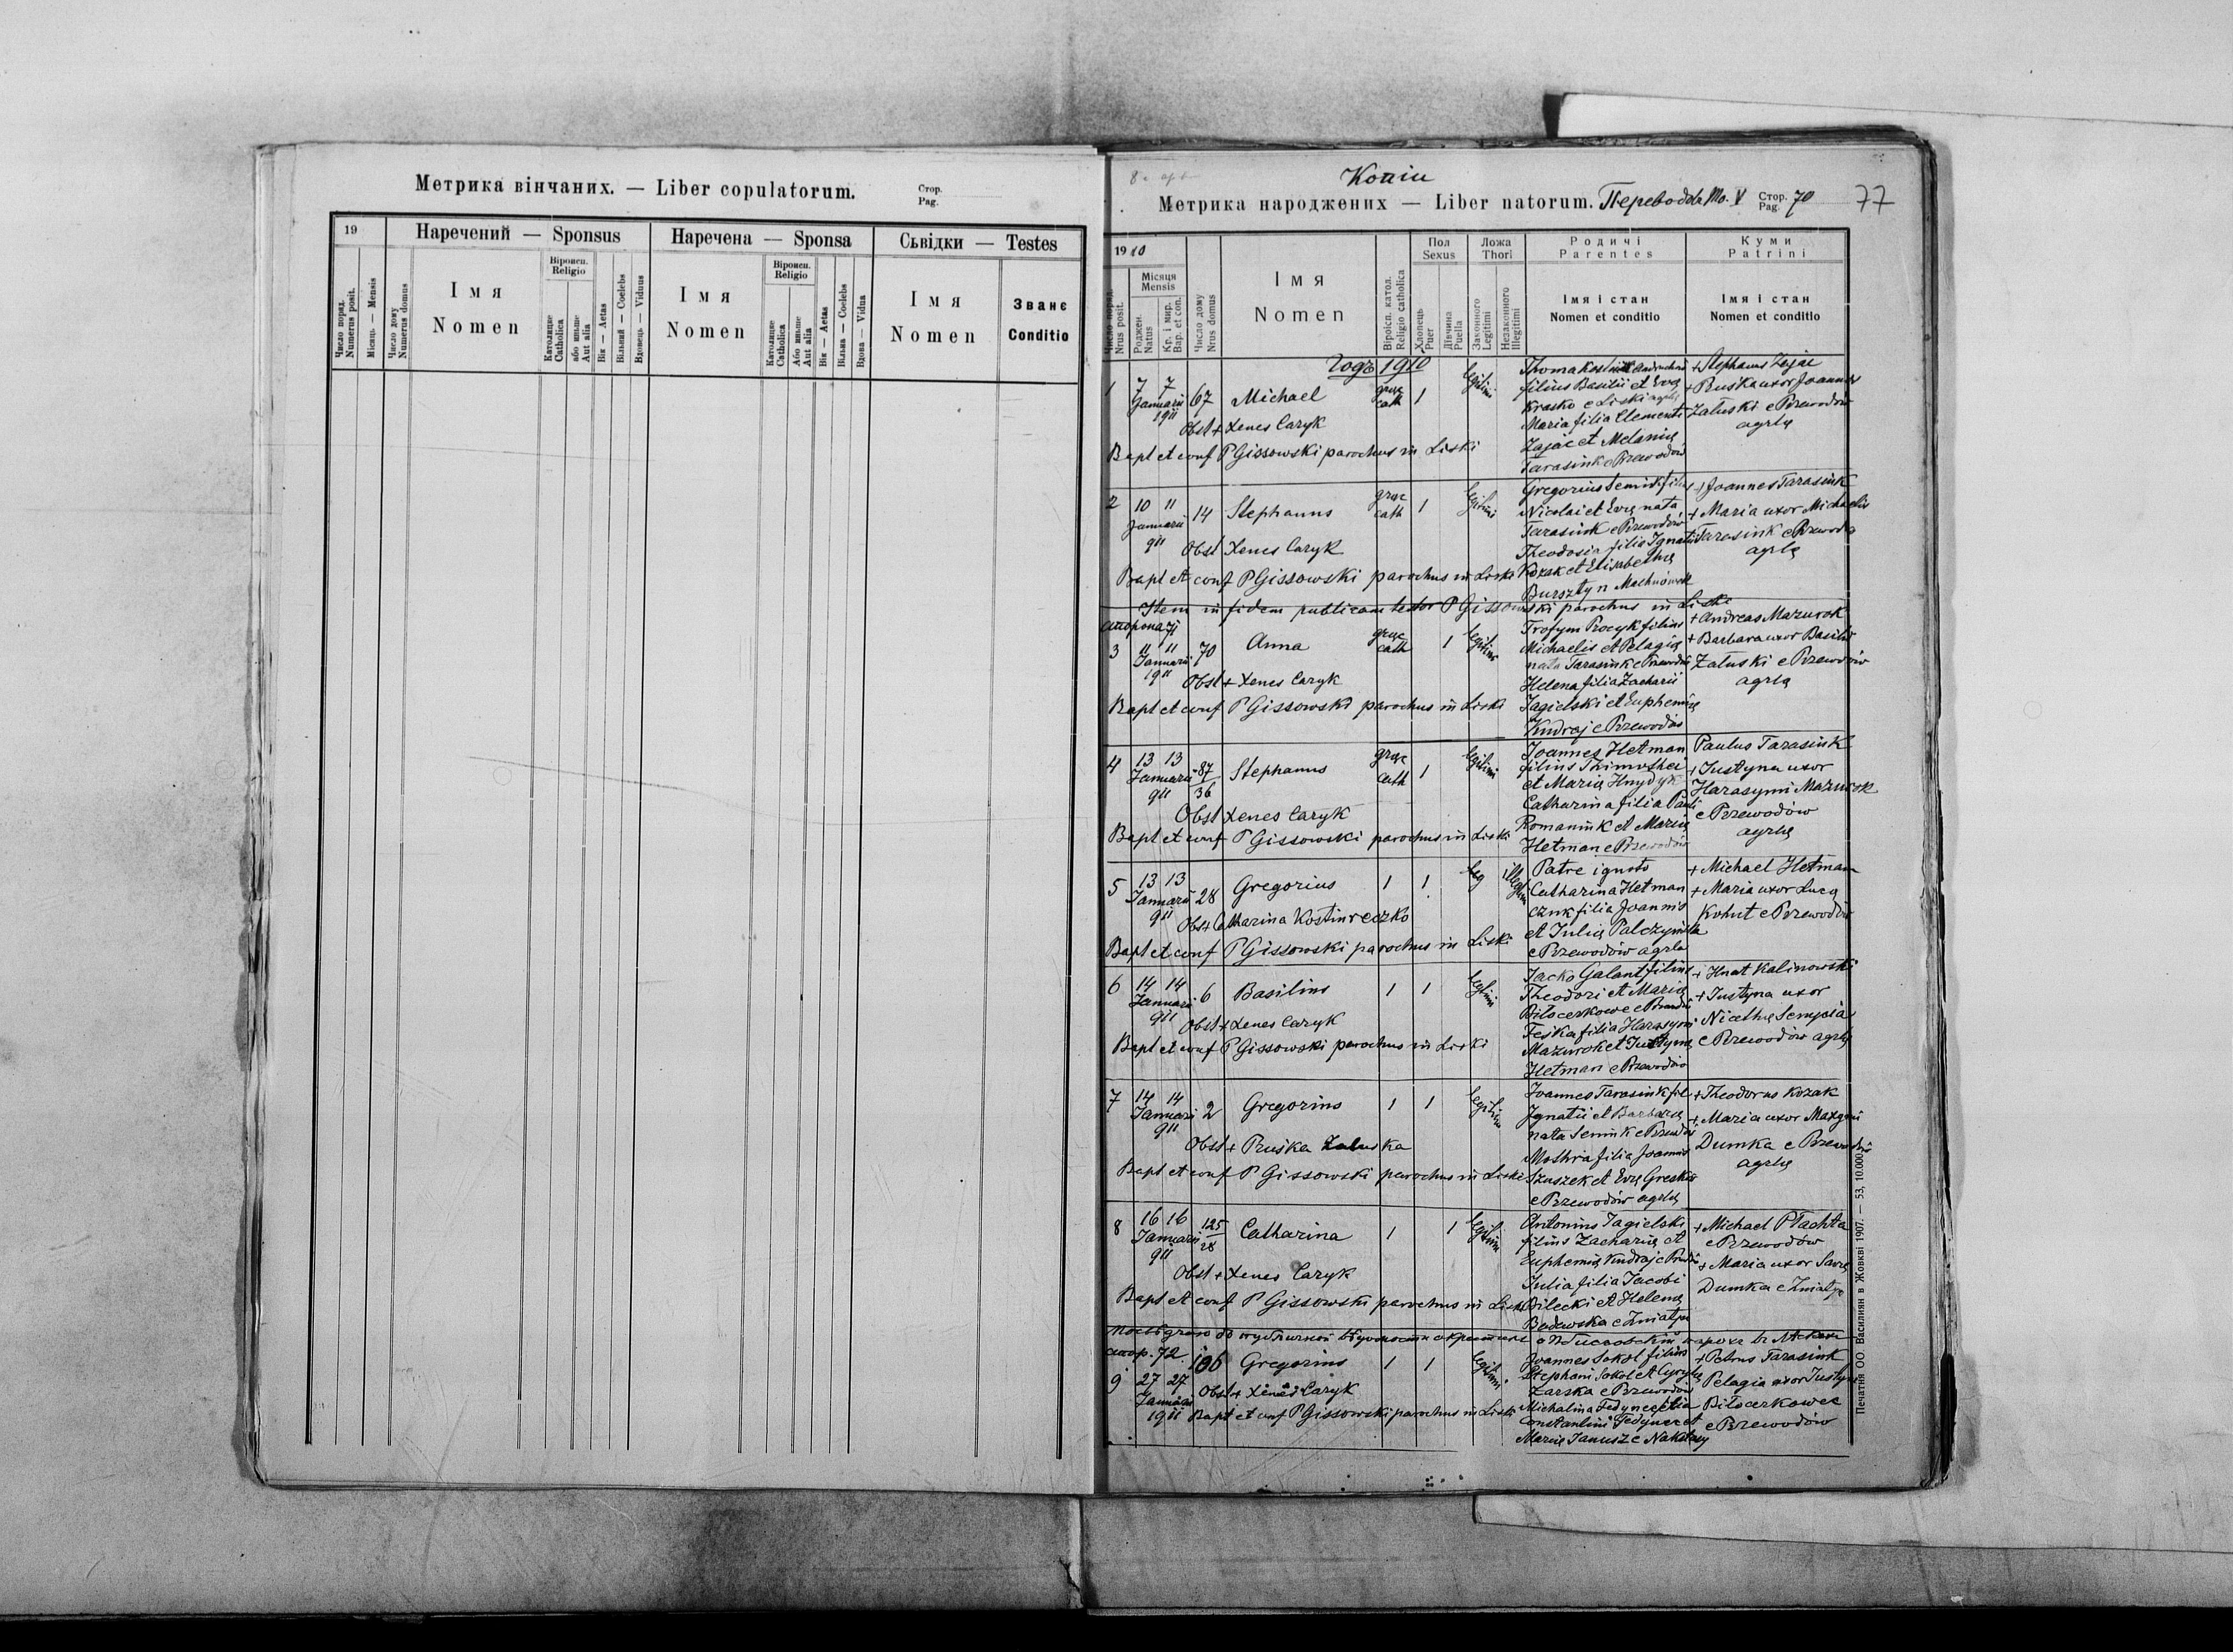 Метрика вінчаних. — Liber copulatorum.
Стор.
Pag.
19
Наречений — Sponsus
Наречена — Sponsa
Сьвідки — Testes
Число поряд.
Numerus posit.
Місяць — Mensis
Число дому
Numerus domus
Імя
Nomen
Віроисп.
Religio
Католицке
Catholica
або иньше
Aut alia
Вік — Aetas
Вільний — Coelebs
Вдовець — Viduus
Імя
Nomen
Віроисп.
Religio
Католицке
Catholica
Або иньше
Aut alia
Вік — Aetas
Вільна — Coelebs
Вдова — Vidua
Імя
Nomen
Званє
Conditio
Копіи
Метрика народжених — Liber natorum.
Стор.
Pag. 70
77
1910
Число поряд.
Nrus posit.
Місяця
Mensis
Роджен.
Natus
Кр. і мир.
Bap. et con.
Число дому
Nrus domus
Імя
Nomen
Віроісп. катол.
Religio catholica
Пол
Sexus
Хлопець
Puer
Дівчина
Puella
Ложа
Thori
Законного
Legitimi
Незаконного
Illegitimi
Родичі
Parentes
Імя і стан
Nomen et conditio
Куми
Patrini
Імя і стан
Nomen et conditio
Годъ 1910
1 7 7 Januarii 1911 67 Michael graec cath 1 legitimi
Obst + Xenes Caryk
Bapt et conf P Gissowski parochus in Liski
filius Basilii et Evę
Krasko e Liski
Maria filia Clementi
Zając et Melanię
Tarasiuk e Przewodów
+ Stephanus Zając
+ Ruska uxor Joannis
Załuski e Przewodów
agrlę
2 10 11 Januarii 911 14 Stephanus graec cath 1 legitimi
Obst Xenes Caryk
Bapt et conf P Gissowski parochus in Liski
Gregorius Semiuk filius
Nicolai et Evę nata
Tarasiuk e Przewodów
Theodosia filia Ignatii
Kozak et Elisabethę
Bursztyn Machnówek
+ Joannes Tarasiuk
+ Maria uxor Michaelis
Tarasiuk e Przewodów
agrlę
Item in fidem publicam testor P Gissowski parochus in Liski
сторона 71
3 11 11 Januarii 1911 70 Anna graec cath 1 legitimi
Obst + Xenes Caryk
Bapt et conf P Gissowski parochus in Liski
Trofym Procyk filius
Michaelis et Pelagię
nata Tarasiuk e Przewodów
Helena filia Zacharii
Jagielski et Euphemię
Kudraj e Przewodów
+ Andreas Mazurok
+ Barbara uxor Basilii
Załuski e Przewodów
agrlę
4 13 13 Januarii 911 87/36 Stephanus graec cath 1 legitimi
Obst Xenes Caryk
Bapt et conf P Gissowski parochus in Liski
Joannes Hetman
filius Thimothei
et Marię Hnydyk
Catharina filia Pauli
Romaniuk et Marię
Hetman e Przewodów
Paulus Tarasiuk
+ Justyna uxor
Harasymi Mazurok
e Przewodów
agrlę
5 13 13 Januarii 911 28 Gregorius 1 1 illegitimi
Obst Catharina
Bapt et conf P Gissowski parochus in Liski
Patre ignoto
Catharina Hetman
czuk filia Joannis
et Julię
e Przewodów agrla
+ Michael Hetman
+ Maria uxor Lucę
Kohut e Przewodów
6 14 14 Januarii 911 6 Basilius 1 1 legitimi
Obst + Xenes Caryk
Bapt et conf P Gissowski parochus in Liski
Jacko Galant filius
Theodori et Marię
Biłocerkowec e Przewodów
Feśka filia Harasymi
Mazurok et Justynę
Hetman e Przewodów
+ Hnat Kalinowski
+ Justyna uxor
Nicethę
e Przewodów agrlę
7 14 14 Januarii 911 2 Gregorius 1 1 legitimi
Obst + Pruśka Załuska
Bapt et conf P Gissowski parochus in Liski
Joannes Tarasiuk fil
Ignatii et Barbarę
nata Semiuk e Przewodów
Mothria filia Joannis
Szuszek et Evę
e Przewodów agrlę
+ Theodorus Kozak
+ Maria uxor Maxymi
Dumka e Przewodów
agrlę
8 16 16 Januarii 911 125/28 Catharina 1 1 legitimi
Obst + Xenes Caryk
Bapt et conf P Gissowski parochus in Liski
Antonius Jagielski
filius Zacharię et
Euphemię Kudraj e Przewodów
Julia filia Jacobi
Bilecki et Helenę
+ Michael Płachta
e Przewodów
+ Maria uxor Savę
Dumka e Żniatyn
стор. 72
9 27 27 Januarii 1911 106 Gregorius 1 1 legitimi
Obst + Xenes Caryk
Bapt et conf P Gissowski parochus in Liski
Joannes Sokol filius
Stephani Sokol et
Zarska e Przewodów
Michalina Fedyniec filia
Constantini Fedyniec et
Marię Janusz e
+ Petrus Tarasiuk
Pelagia uxor Justyni
Biłocerkowec
e Przewodów
Печатня ОО. Василиян в Жовкві 1907. — 53, 10.000